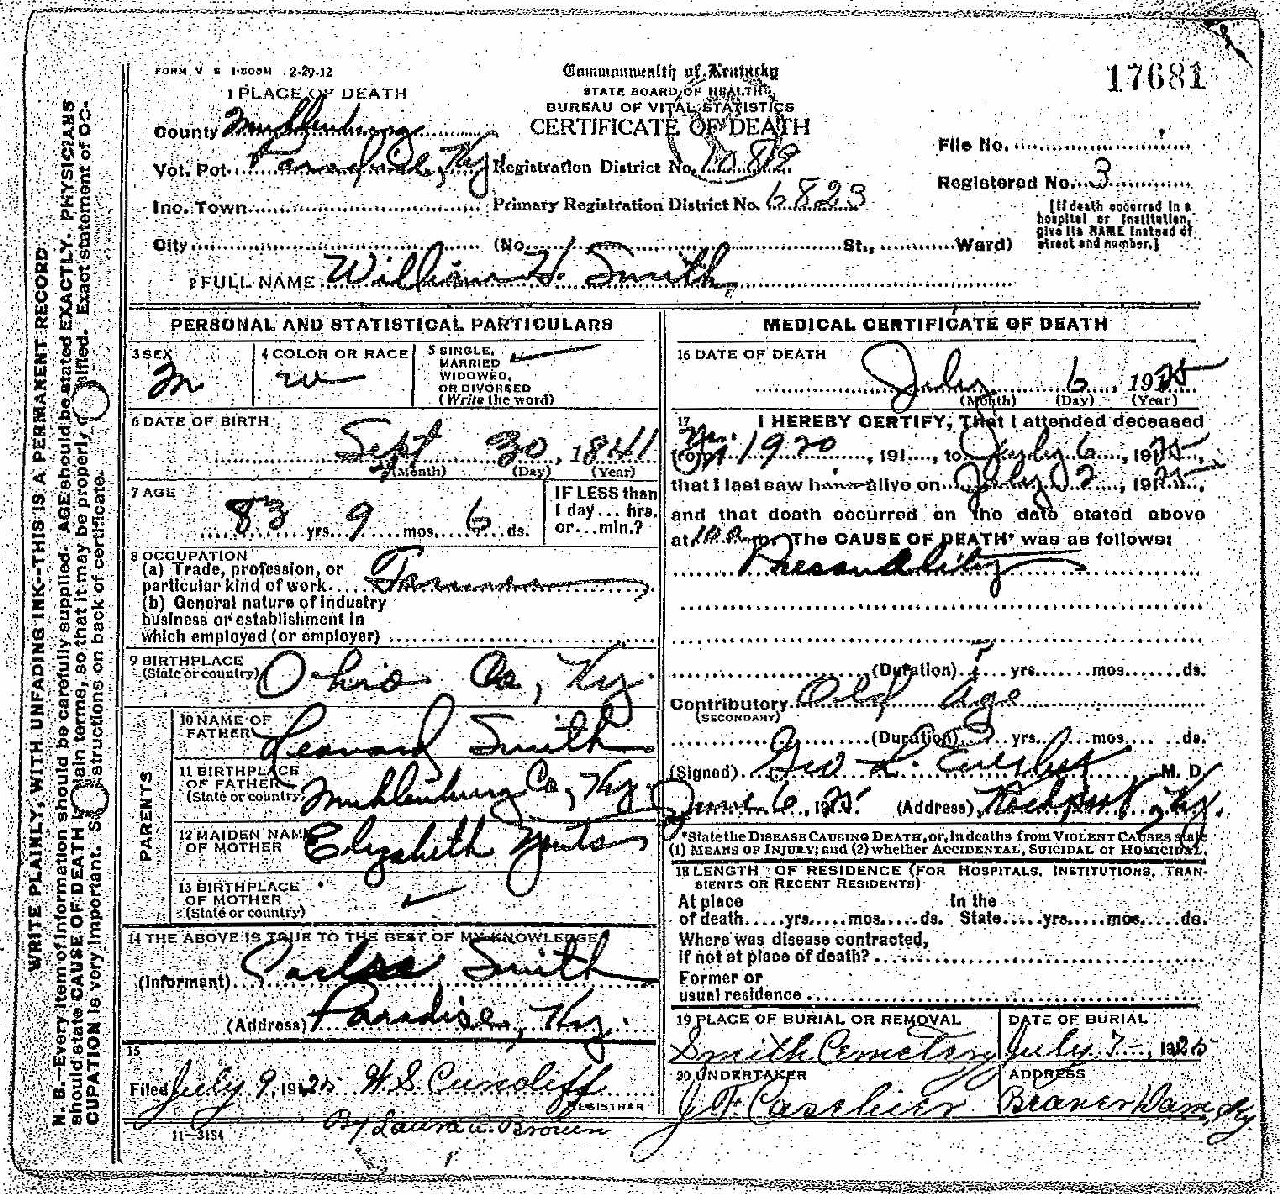 FORM V S 1-500M 2-29-12
Commonwealth of Kentucky
17681
STATE BOARD OF HEALTH
BUREAU OF VITAL STATISTICS
CERTIFICATE OF DEATH
1 PLACE OF DEATH
County Muhlenburg
File No.
Vot. Pct. Paradise, Ky Registration District No. 1089
Registered No. 3
Inc. Town Primary Registration District No. 6823
[If death occurred in a hospital or institution, give its NAME instead of street and number.]
City (No. St., Ward)
2 FULL NAME William H. Smith
PERSONAL AND STATISTICAL PARTICULARS
3 SEX
M
4 COLOR OR RACE
w
5 SINGLE,
MARRIED
WIDOWED,
OR DIVORSED
(Write the word)
6 DATE OF BIRTH
Sept 30, 1841
(Month) (Day) (Year)
7 AGE
83 yrs. 9 mos. 6 ds.
IF LESS than
1 day... hrs.
or...min.?
8 OCCUPATION
(a) Trade, profession, or
particular kind of work Farmer
(b) General nature of industry
business or establishment in
which employed (or employer)
9 BIRTHPLACE
(State or country) Ohio Co, Ky.
PARENTS
10 NAME OF
FATHER Leonard Smith
11 BIRTHPLACE
OF FATHER
(State or country) Muhlenburg Co, Ky.
12 MAIDEN NAME
OF MOTHER Elizabeth
13 BIRTHPLACE
OF MOTHER
(State or country)
14 THE ABOVE IS TRUE TO THE BEST OF MY KNOWLEDGE
(Informant) Smith
(Address) Paradise, Ky.
15
Filed July 9, 1925 W.S. Cundiff
REGISTRER
By Laura A. Brown
11-3184
MEDICAL CERTIFICATE OF DEATH
16 DATE OF DEATH
July 6, 1925
(Month) (Day) (Year)
17 I HEREBY CERTIFY, That I attended deceased
from 1920, 191..., to July 6, 1925
that I last saw him alive on July 2, 1925,
and that death occurred on the date stated above
at 10 a m. The CAUSE OF DEATH* was as follows:
(Duration) ? yrs. mos. ds.
Contributory Old age
(SECONDARY)
(Duration) yrs. mos. ds.
(Signed) Geo L. M. D.
June 6, 1925 (Address) Rockport Ky.
*State the DISEASE CAUSING DEATH, or, in deaths from VIOLENT CAUSES state
(1) MEANS OF INJURY; and (2) whether ACCIDENTAL, SUICIDAL or HOMICIDAL.
18 LENGTH OF RESIDENCE (FOR HOSPITALS, INSTITUTIONS, TRAN-
SIENTS OR RECENT RESIDENTS)
At place In the
of death.....yrs.....mos....ds. State.....yrs....mos....ds.
Where was disease contracted,
if not at place of death?
Former or
usual residence
19 PLACE OF BURIAL OR REMOVAL
Smith Cemetery
DATE OF BURIAL
July 7, 1925
20 UNDERTAKER
J F Casebier
ADDRESS
Beaver Dam, Ky
WRITE PLAINLY, WITH UNFADING INK--THIS IS A PERMANENT RECORD
N. B.--Every item of information should be carefully supplied. AGE should be stated EXACTLY. PHYSICIANS
should state CAUSE OF DEATH in plain terms, so that it may be properly classified. Exact statement of OC-
CUPATION is very important. See instructions on back of certificate.